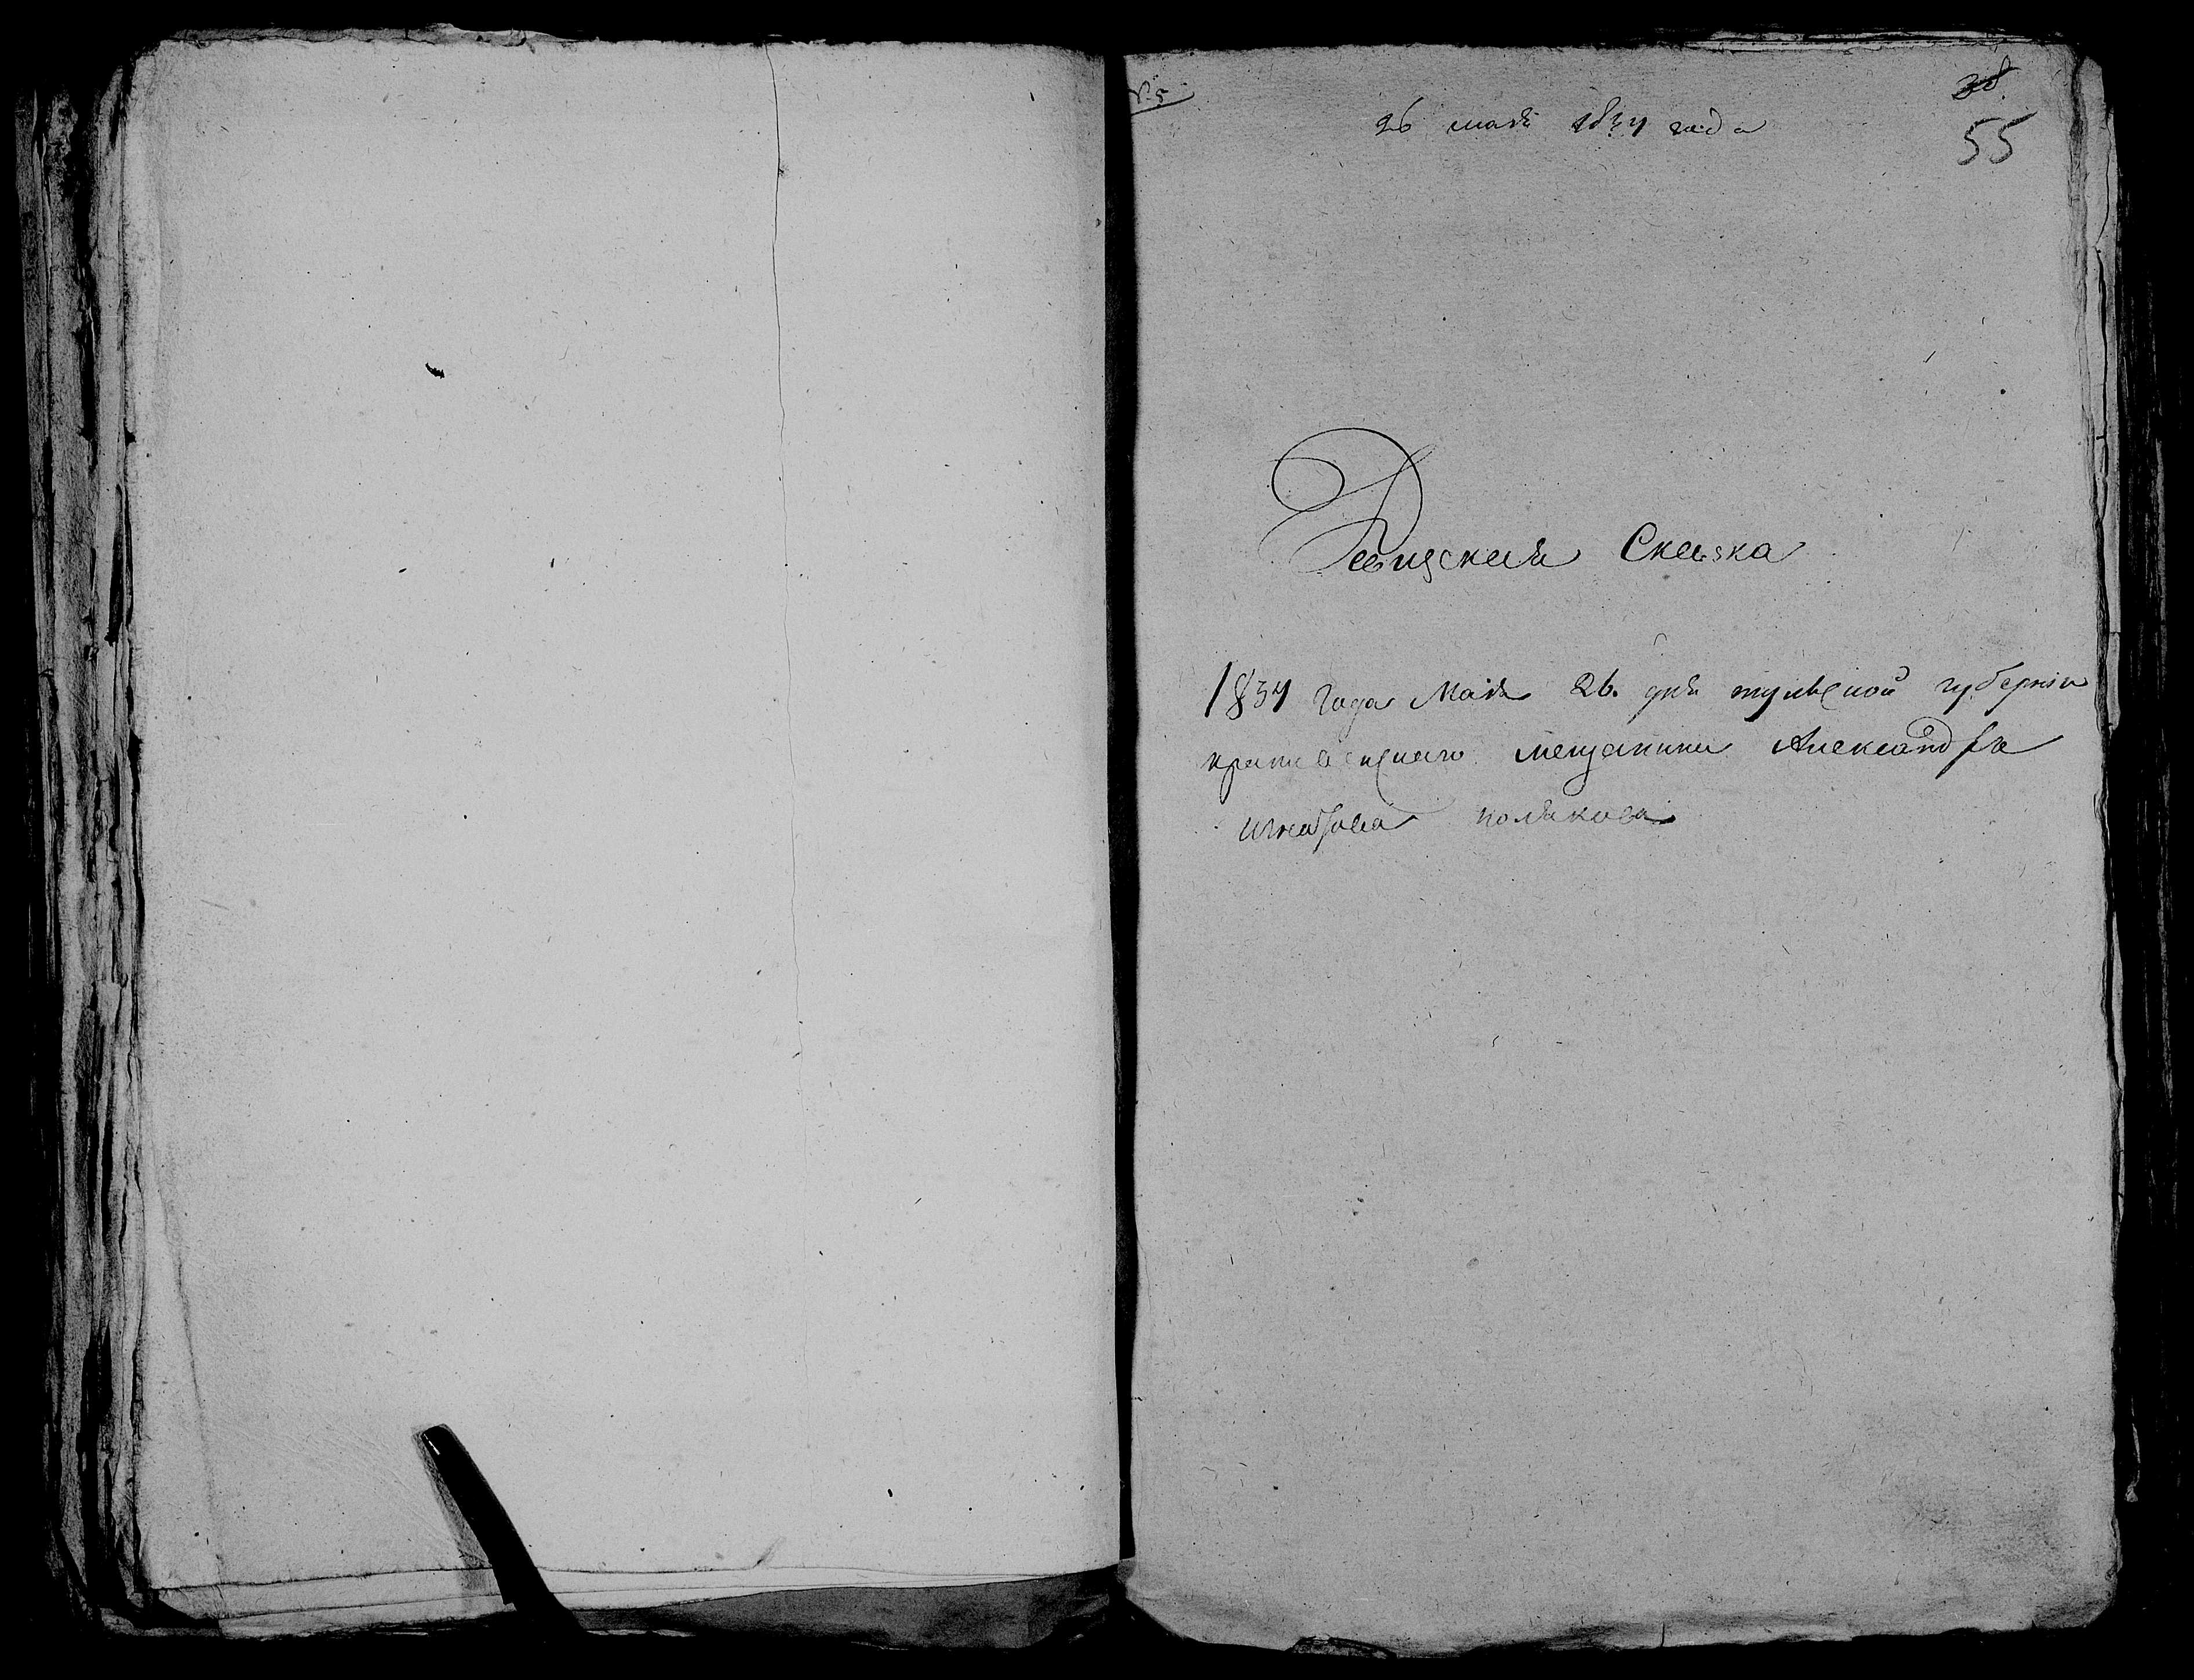 № 5
38.
26 мая 1834 года
55
Ревиская Скаска
1834 года Мая 26. дня тульской губернiи
крапивенскаго мещанина Александра
полякова